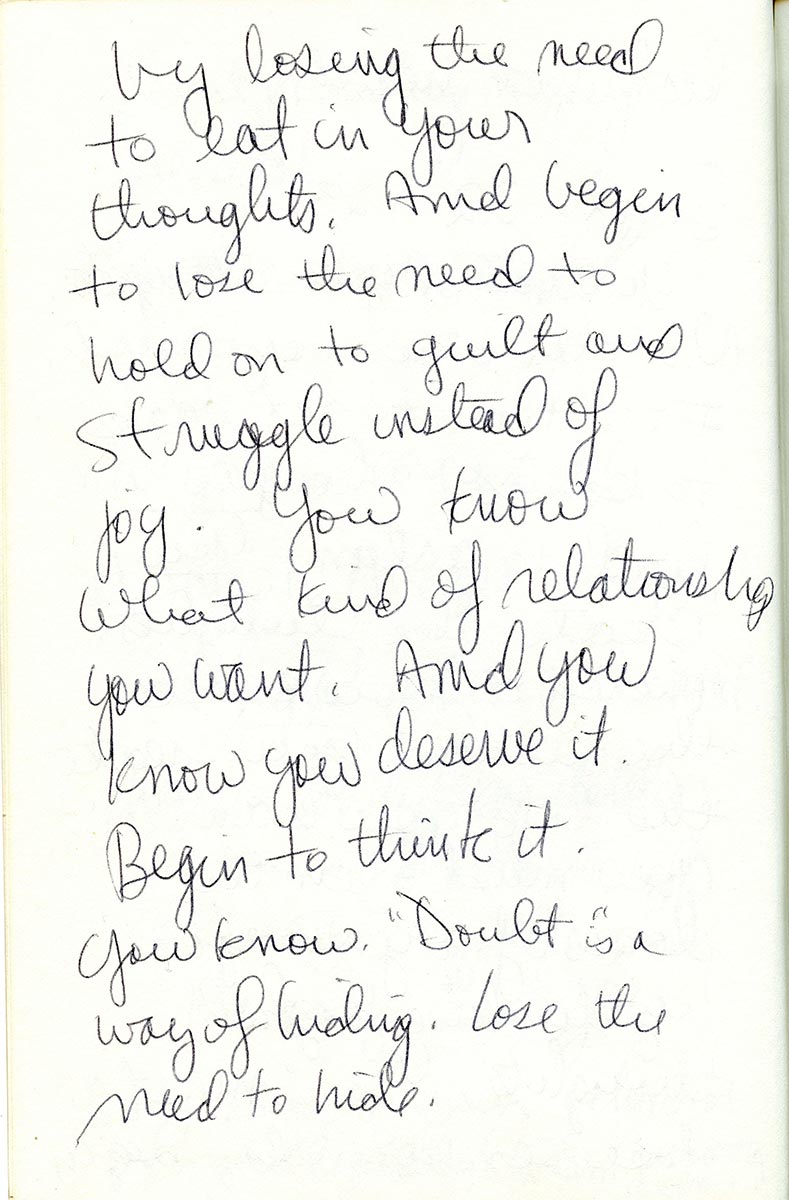 by losing the need
to eat in your
thoughts. And begin
to lose the need to
hold on to guilt and
struggle instead of
joy. You know
what kind of relationship
you want. And you
know you deserve it.
Begin to think it.
You know. "Doubt" is a
way of hiding. Lose the
need to hide.